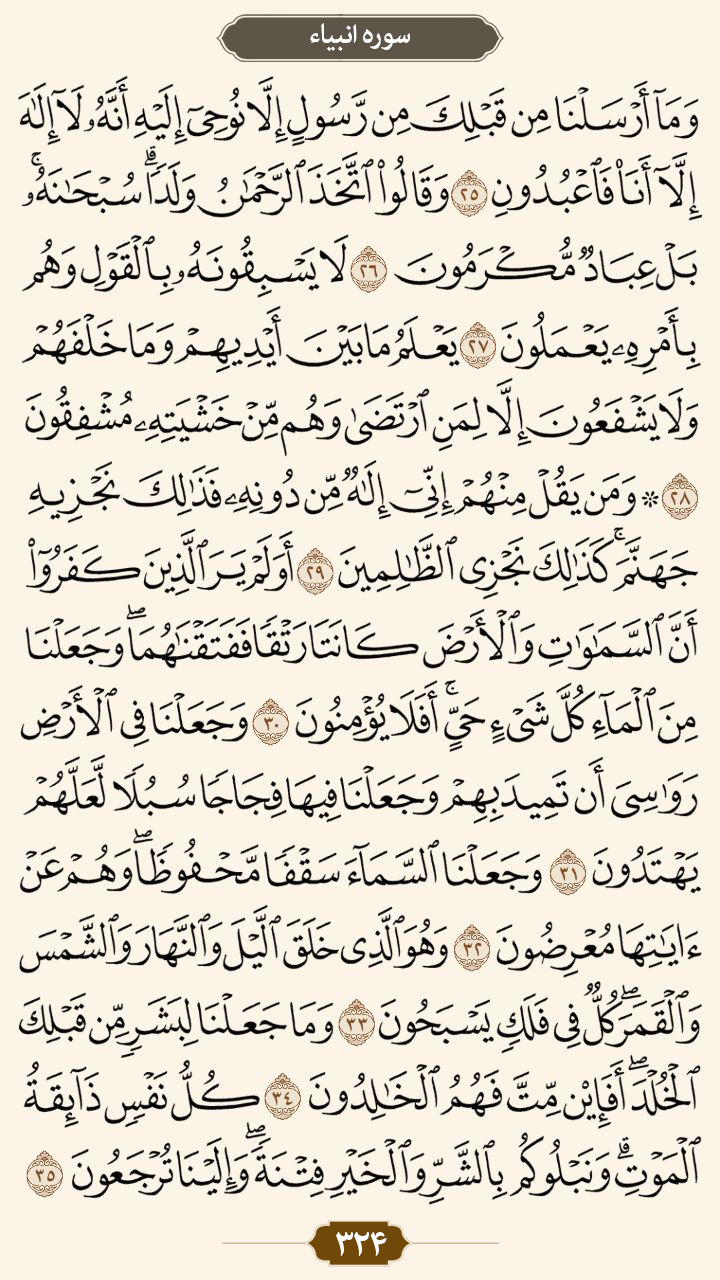 سوره انبیاء
وَمَآ أَرۡسَلۡنَا مِن قَبۡلِكَ مِن رَّسُولٍ إِلَّا نُوحِيٓ إِلَيۡهِ أَنَّهُۥ لَآ إِلَٰهَ
إِلَّآ أَنَا۠ فَٱعۡبُدُونِ ٢٥ وَقَالُواْ ٱتَّخَذَ ٱلرَّحۡمَٰنُ وَلَدٗاۗ سُبۡحَٰنَهُۥۚ
بَلۡ عِبَادٞ مُّكۡرَمُونَ ٢٦ لَا يَسۡبِقُونَهُۥ بِٱلۡقَوۡلِ وَهُم
بِأَمۡرِهِۦ يَعۡمَلُونَ ٢٧ يَعۡلَمُ مَا بَيۡنَ أَيۡدِيهِمۡ وَمَا خَلۡفَهُمۡ
وَلَا يَشۡفَعُونَ إِلَّا لِمَنِ ٱرۡتَضَىٰ وَهُم مِّنۡ خَشۡيَتِهِۦ مُشۡفِقُونَ
٢٨ * وَمَن يَقُلۡ مِنۡهُمۡ إِنِّيٓ إِلَٰهٞ مِّن دُونِهِۦ فَذَٰلِكَ نَجۡزِيهِ
جَهَنَّمَۚ كَذَٰلِكَ نَجۡزِي ٱلظَّٰلِمِينَ ٢٩ أَوَلَمۡ يَرَ ٱلَّذِينَ كَفَرُوٓاْ
أَنَّ ٱلسَّمَٰوَٰتِ وَٱلۡأَرۡضَ كَانَتَا رَتۡقٗا فَفَتَقۡنَٰهُمَاۖ وَجَعَلۡنَا
مِنَ ٱلۡمَآءِ كُلَّ شَيۡءٍ حَيٍّۚ أَفَلَا يُؤۡمِنُونَ ٣٠ وَجَعَلۡنَا فِي ٱلۡأَرۡضِ
رَوَٰسِيَ أَن تَمِيدَ بِهِمۡ وَجَعَلۡنَا فِيهَا فِجَاجٗا سُبُلٗا لَّعَلَّهُمۡ
يَهۡتَدُونَ ٣١ وَجَعَلۡنَا ٱلسَّمَآءَ سَقۡفٗا مَّحۡفُوظٗاۖ وَهُمۡ عَنۡ
ءَايَٰتِهَا مُعۡرِضُونَ ٣٢ وَهُوَ ٱلَّذِي خَلَقَ ٱلَّيۡلَ وَٱلنَّهَارَ وَٱلشَّمۡسَ
وَٱلۡقَمَرَۖ كُلّٞ فِي فَلَكٖ يَسۡبَحُونَ ٣٣ وَمَا جَعَلۡنَا لِبَشَرٖ مِّن قَبۡلِكَ
ٱلۡخُلۡدَۖ أَفَإِيْن مِّتَّ فَهُمُ ٱلۡخَٰلِدُونَ ٣٤ كُلُّ نَفۡسٖ ذَآئِقَةُ
ٱلۡمَوۡتِۗ وَنَبۡلُوكُم بِٱلشَّرِّ وَٱلۡخَيۡرِ فِتۡنَةٗۖ وَإِلَيۡنَا تُرۡجَعُونَ ٣٥
۳۲۴